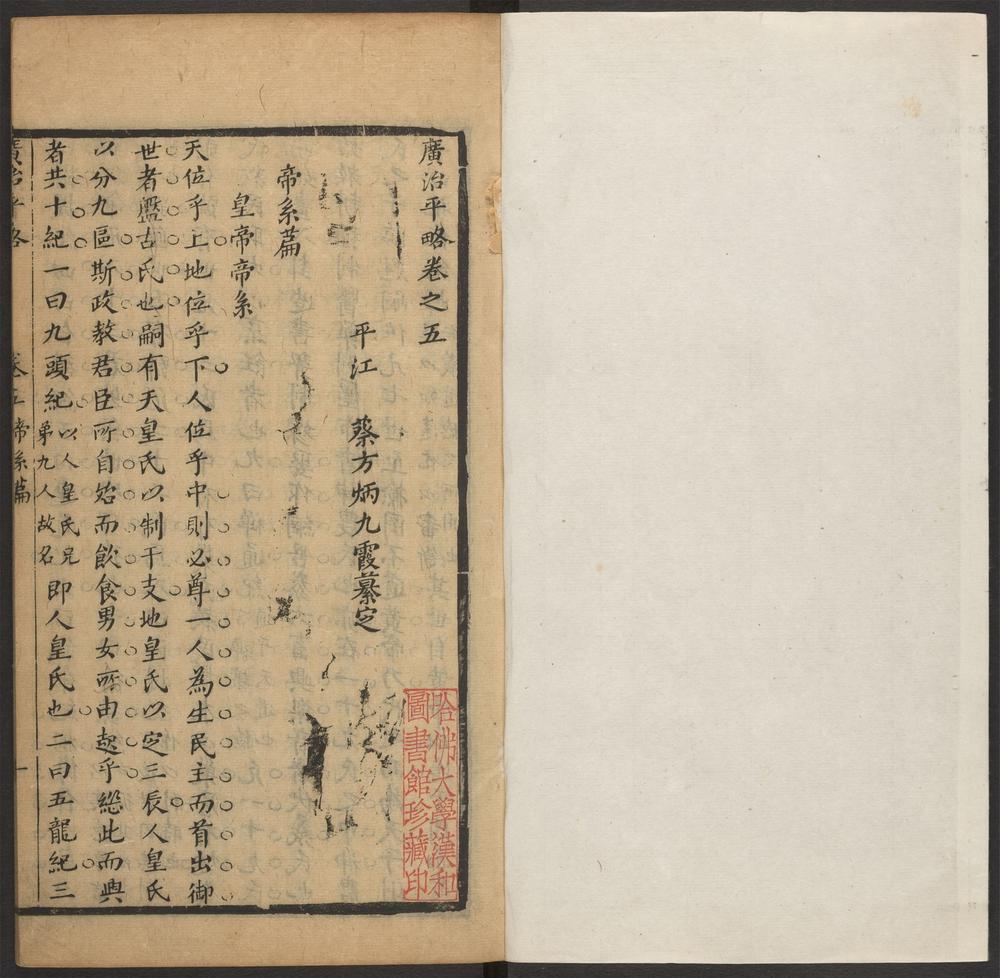 廣治平略卷之五
平江 蔡方炳九霞纂定
帝系篇
皇帝帝系
天位乎上地位乎下人位乎中則必尊一人為生民主而首出御
世者盤古氏也嗣有天皇氏以制干支地皇氏以定三辰人皇氏
以分九區斯政教君臣所自始而飲食男女所由起乎緫此而興
者共十紀一曰九頭紀以人皇氏兄弟九人故名即人皇氏也二曰五龍紀三
廣治平略 卷五帝系篇 一
哈佛大學漢和
圖書館珍藏印